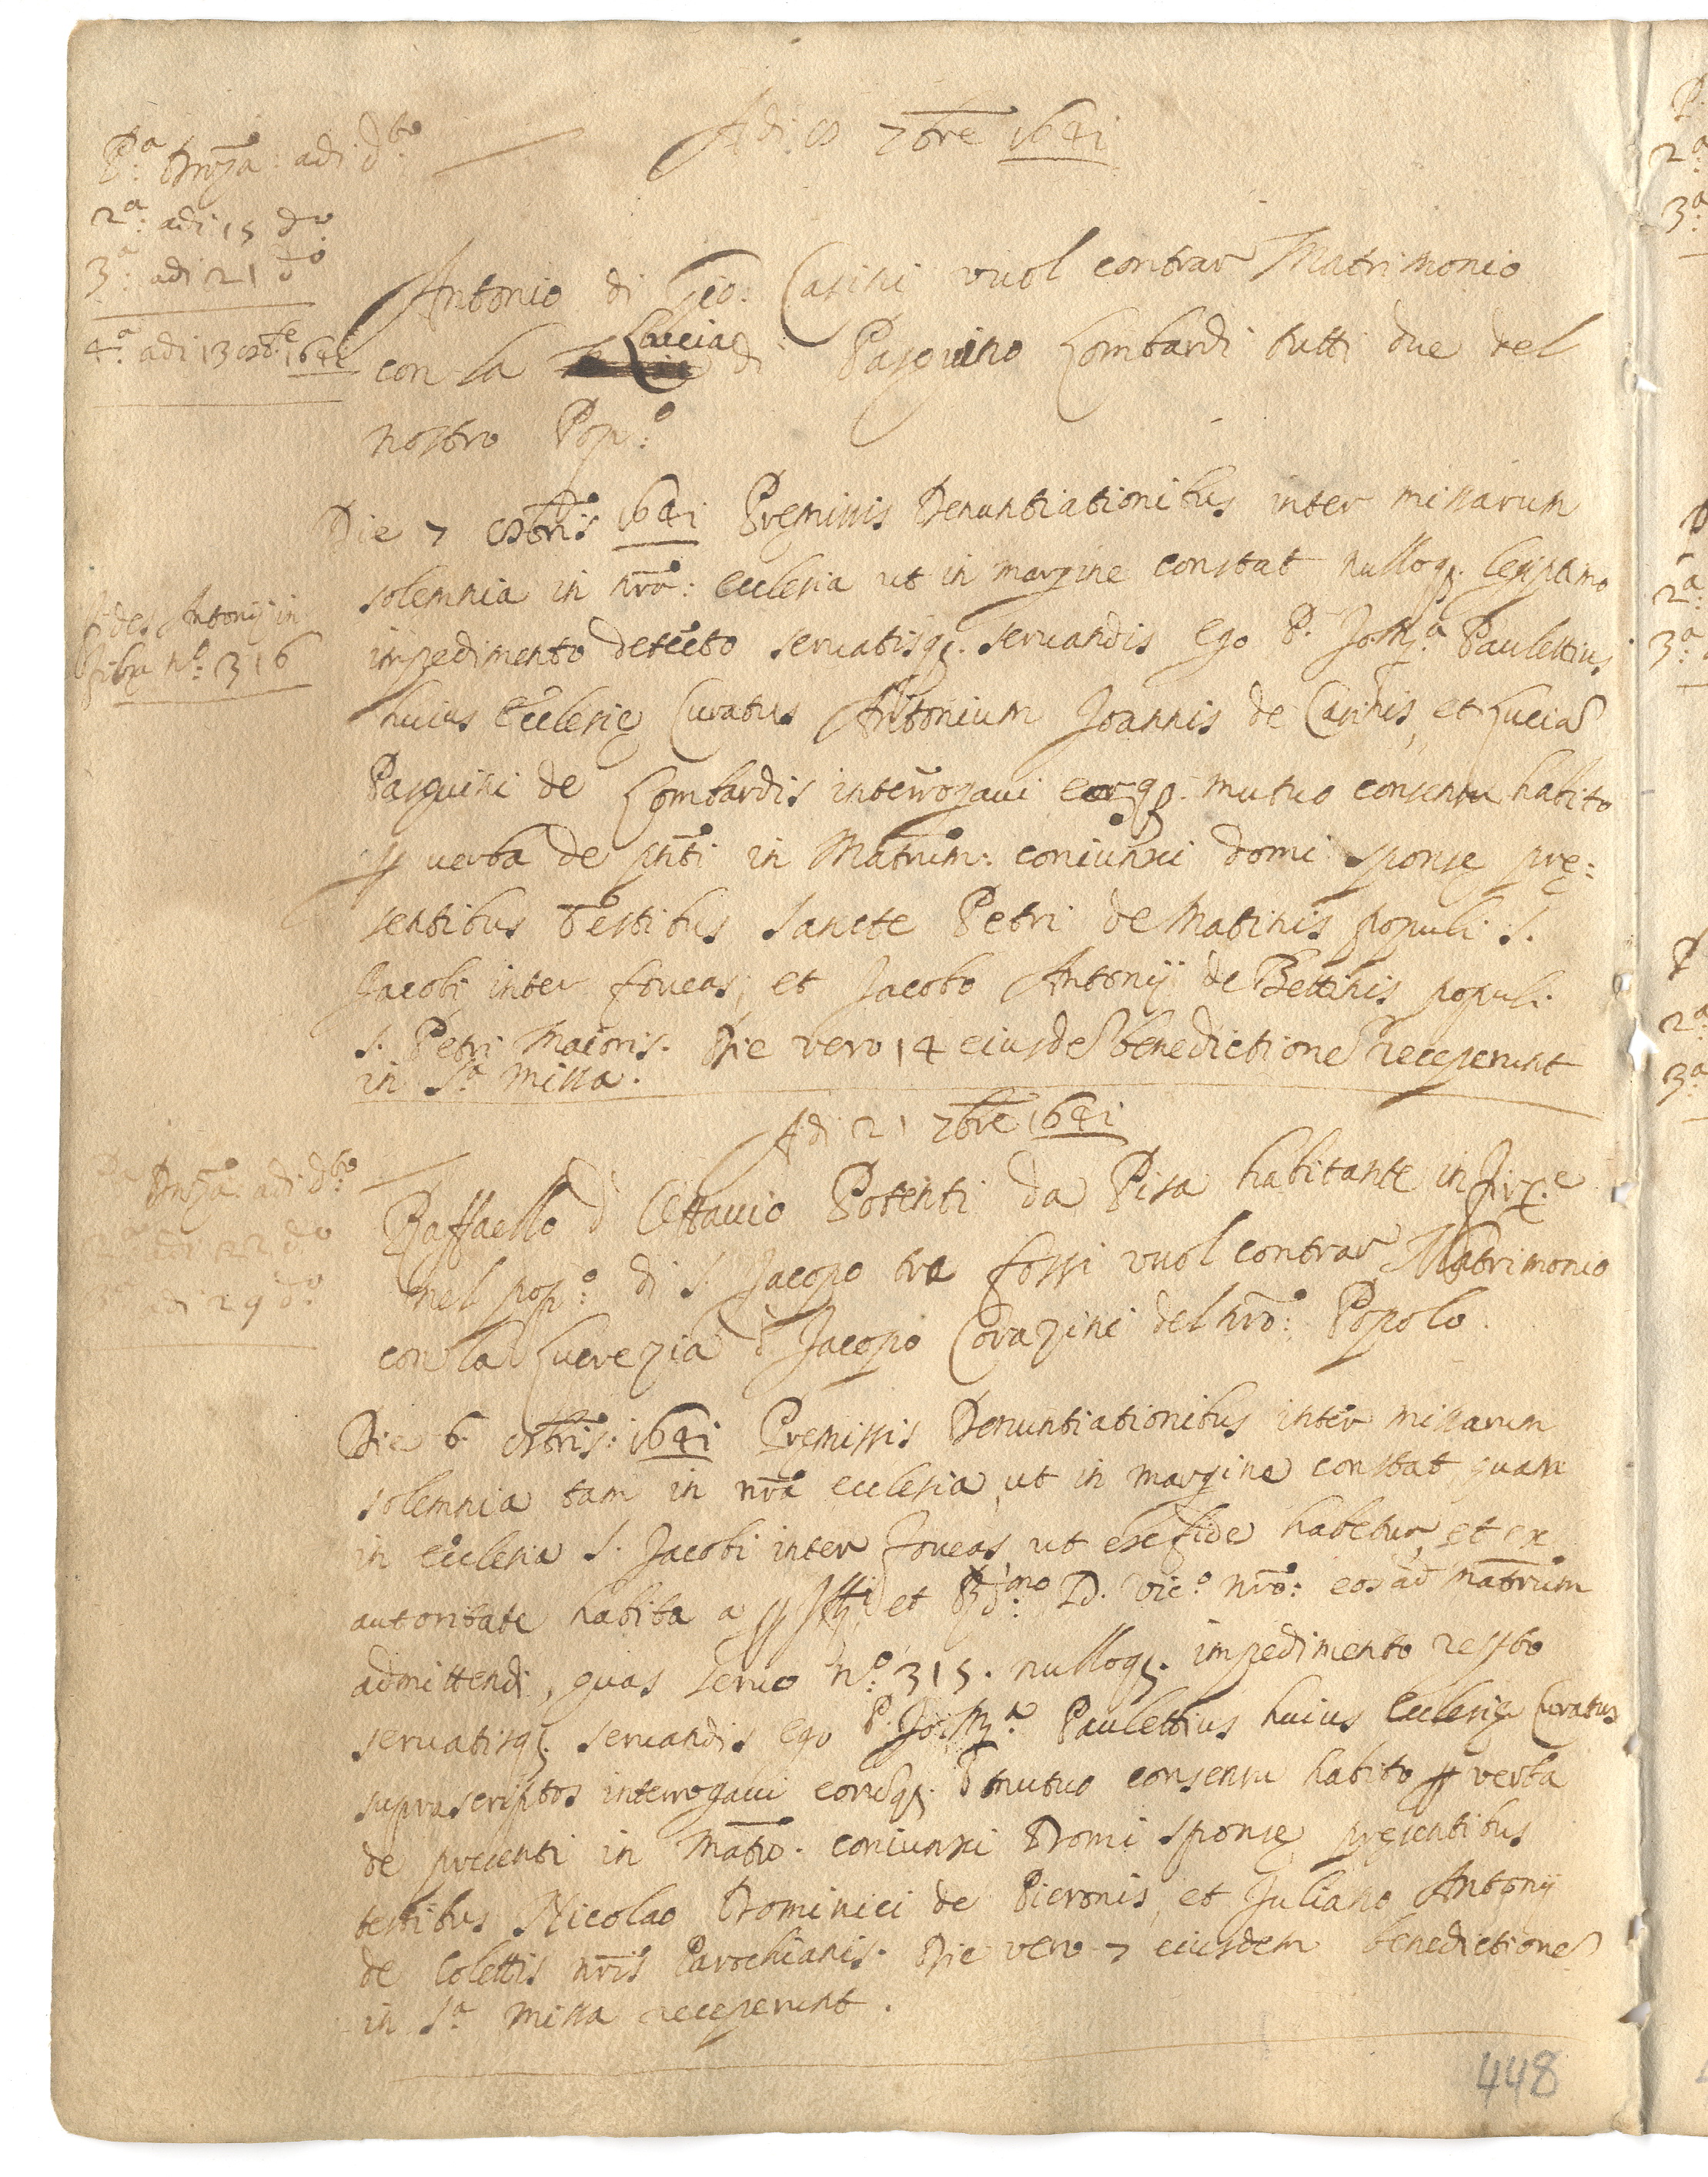 Adi 8 7bre 1641
P.a Dnza: adi d.to
2.a: adi 15 d.o
3.a: adi 21 d.o
4.a adi 13 8b.re 1641
Antonio di Gio: Casini vuol contrar Matrimonio
con la Lucia di Pasquino Lombardi tutti due del
nostro Pop:o
Die 7 8bris 1641 Premissis Denuntiationibus inter missarum
solemnia in nra: ecclesia ut in margine constat nulloq. legiptimo
impedimento detecto servatisq. servandis Ego P. Jo: Paulettius
huius Ecclesie Curatus Antonium Joannis de Casinis, et Lucia
Pasquini de Lombardis interrogavi eorq. mutuo consensu habito
p verba de pnti in Matrim: coniunxi domi sponse pre:
sentibus Testibus Sancte Petri de Matinis populi S.
Jacobi inter foveas, et Jacobo Antonij de Bettinis populi
S. Petri Maioris. Die vero 14 eiusde benedictione receperunt
in S.a missa.
fides Antonij in
filza n.o 316
Adi 21 7bre 1641
P.a Dnza: adi d.to
2.a adi 22 d.o
3.a adi 29 d.o
Raffaello d Ottavio Potenti da Pisa habitante in Firz.e
nel pop:o di S. Jacopo tra fossi vuol contrar Matrimonio
con la Lucrezia d Jacopo Corazini del nro: Popolo.
Die 6 8bris: 1641 Premissis Denuntiationibus inter missarum
solemnia tam in nra ecclesia, ut in margine constat quam
in ecclesia S. Jacobi inter foveas, ut ex fide habetur, et ex
autoritate habita a et D. Vic.o nro: eos ad Matrim
admittendi, quas servo n.o 315. nulloq. impedimento
servatisq. servandis ego P. Jo: Paulettius huius Ecclesie Curatus
suprascriptos interrogavi eorq. mutuo consensu habito p verba
de presenti in Mat.o coniunxi Domi sponse, presentibus
testibus Nicolao Dominici de Pieronis, et Juliano Antonij
de Colettis nris Parochianis. Die vero 7 eiusdem benedictione
in S.a missa receperunt.
448